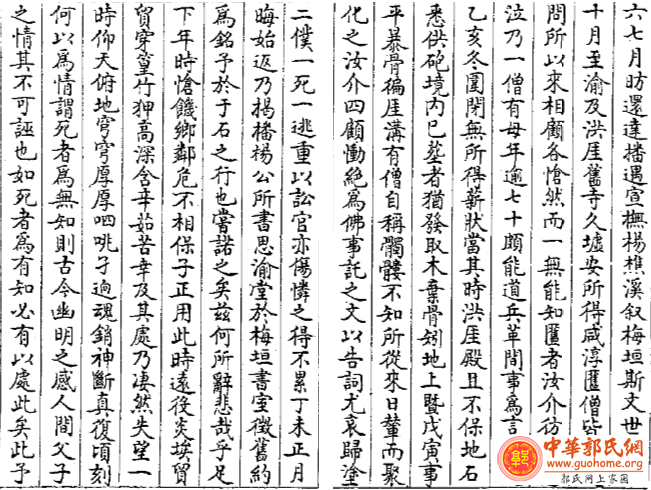 六七月昉還達播遇宣撫楊樵溪叙梅垣斯文世
十月至渝及洪厓舊寺久墟安所得咸淳匭僧皆
問所以來相顧各愴然而一無能知匭者汝介彷
泣乃一僧有母年逾七十頗能道兵革間事爲言
乙亥冬圍閉無所得薪狀當其時洪厓殿且不保地石
悉供砲境内已墓者猶發取木棄骨矧地上暨戊寅事
平暴骨徧厓溝有僧自稱髑髏不知所從來日輦而聚
化之汝介四顧慟絶爲佛事託之文以告詞尤哀歸塗
二僕一死一逃重以訟官亦傷憐之得不累丁未正月
晦始返乃揭播楊公所書思渝堂於梅垣書室徵舊約
爲銘予於于石之行也嘗諾之矣兹何所辭悲哉乎足
下年時愴饑鄉鄰危不相保子正用此時遠役炎埃貿
貿穿篁竹狎高深含辛茹苦幸及其處乃凄然失望一
時仰天俯地穹穹厚厚呬咷孑逈魂銷神斷真復頃刻
何以爲情謂死者爲無知則古今幽明之感人間父子
之情其不可誣也如死者爲有知必有以處此矣此予
中華郭氏網
www.guohome.org
郭氏网上家園